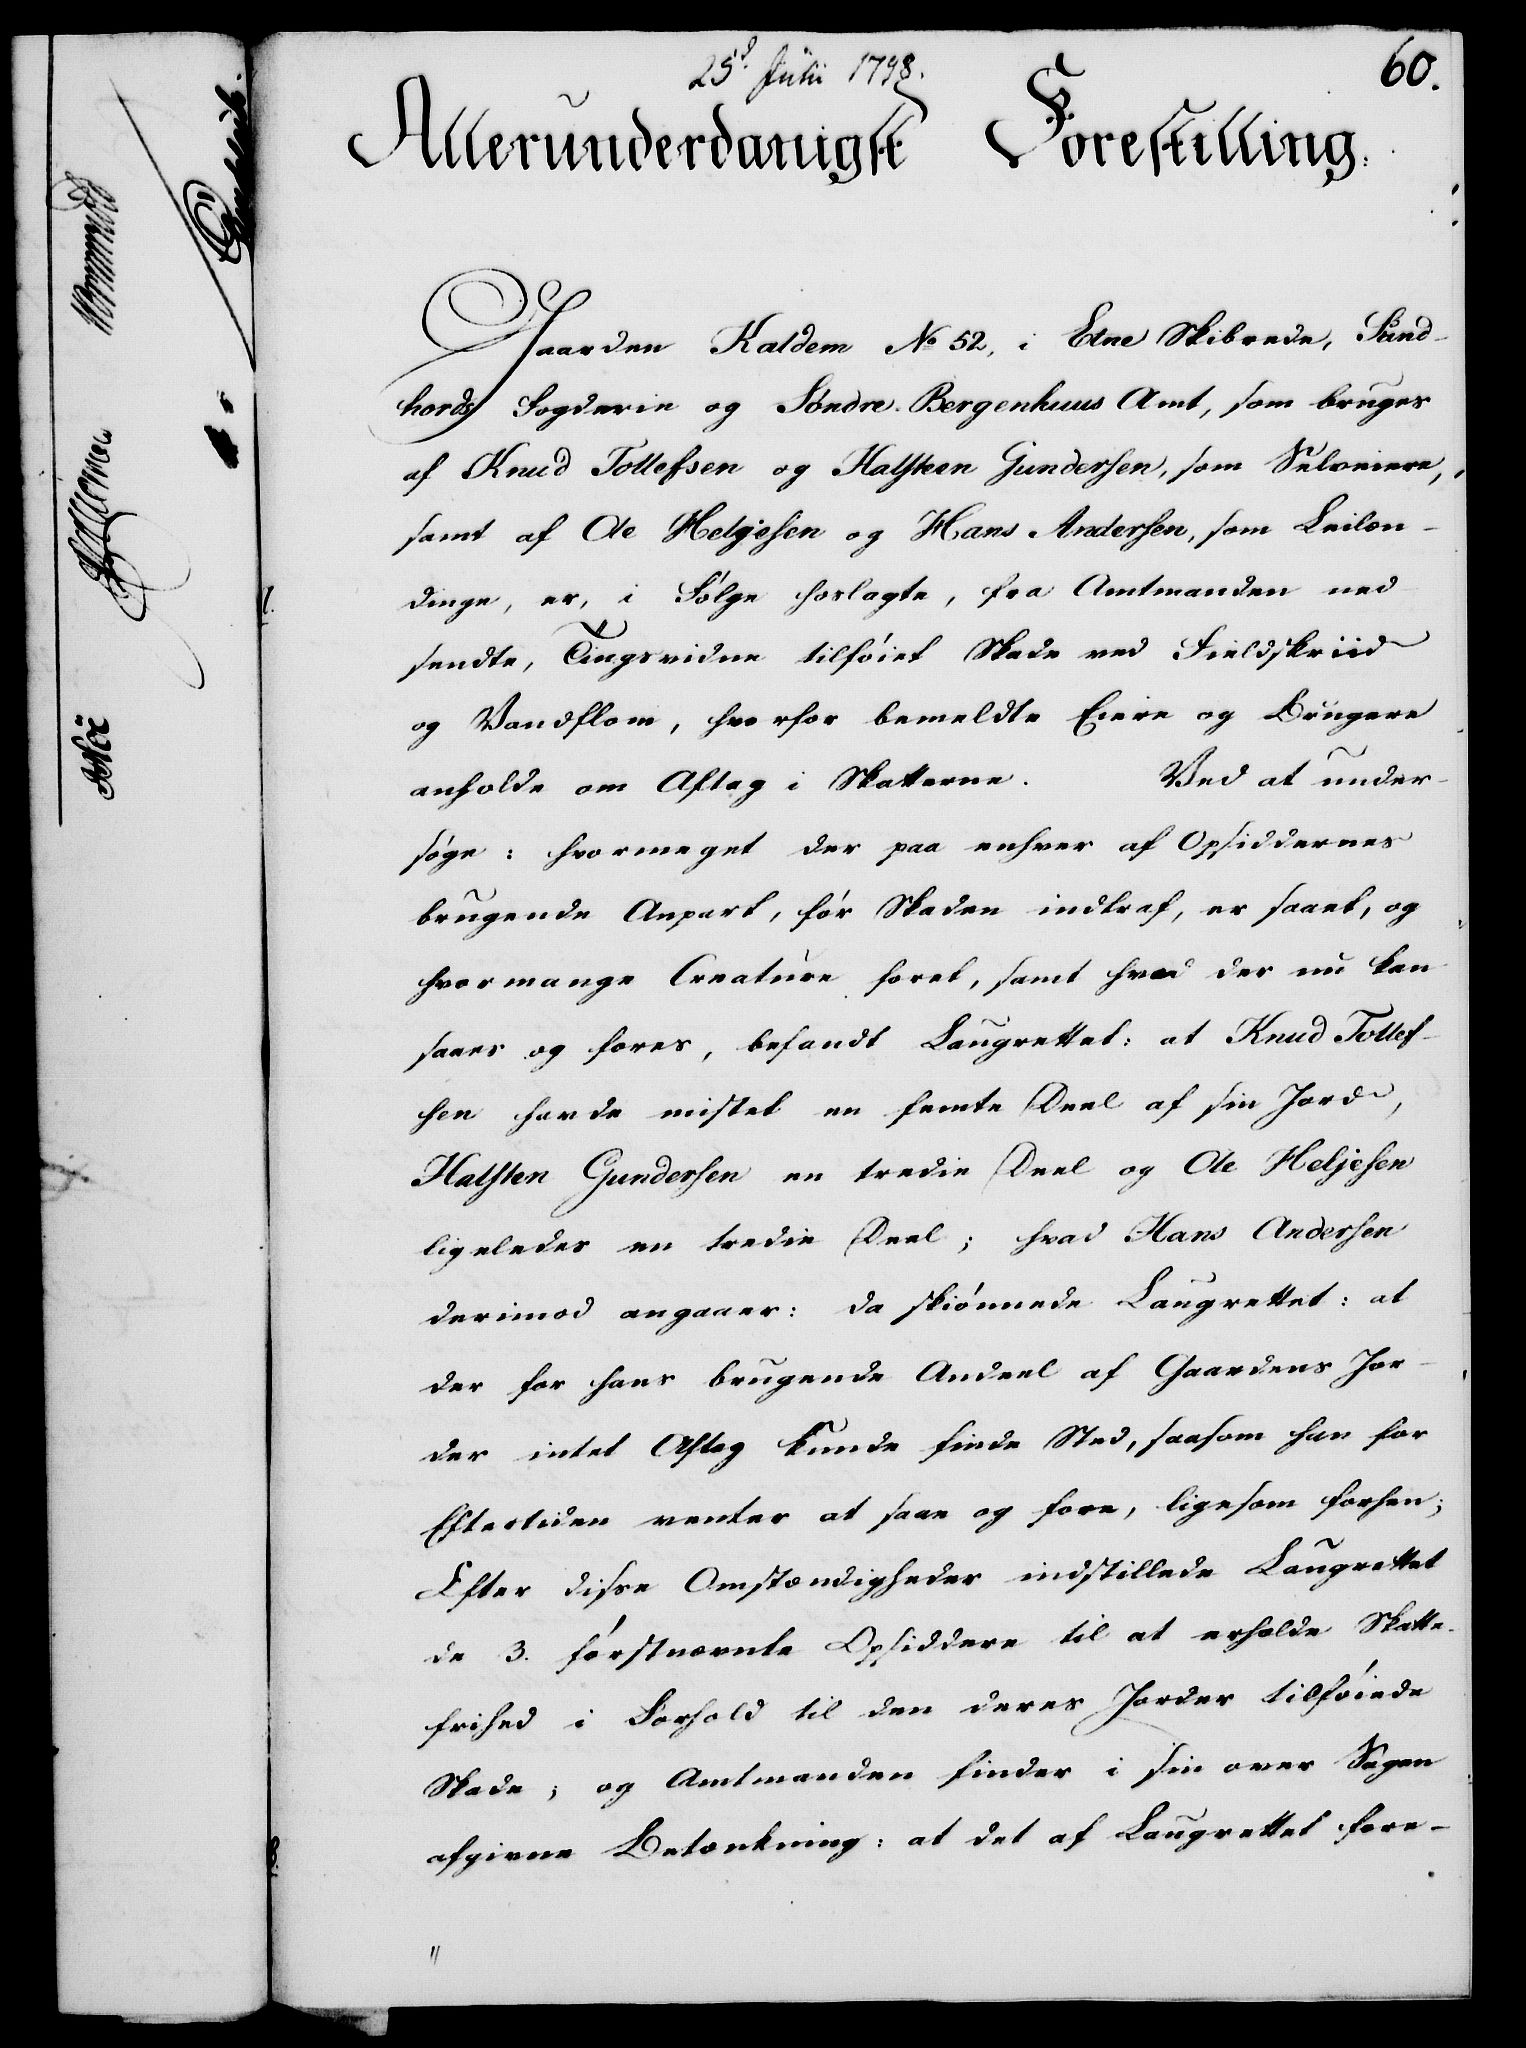 25d Julii 1798.
60.
Allerunderdanigst Forestilling.
Gaarden Kaldem No 52, i Etne Skibrede, Sund-
hords Fogderie og Søndre Bergenhuus Amt, som bruges
af Knud Tollefsen og Halsteen Gundersen, som Selveiere,
samt af Ole Helgesen og Hans Andersen, som Leilæn-
dinge, er, i Følge hoslagte, fra Amtmanden ned-
sendte, Tingsvidne tilføiet Skade ved Fieldskriid
og Vandflom, hvorfor bemeldte Eiere og Brugere
anholde om Aftag i Skatterne. Ved at under-
søge: hvormeget der paa enhver af Opsiddernes
brugende Anpart, før Skaden indtraf, er saaet, og
hvormange Creature foret, samt hvad der nu kan
saaes og fores, befandt Laugrettet: at Knud Tollef-
sen havde mistet en femte Deel af sin Jord,
Halsten Gundersen en tredie Deel og Ole Heljesen
ligeledes en tredie Deel; hvad Hans Andersen
derimod angaaer: da skiønnede Laugrettet: at
der for hans brugende Andeel af Gaardens Jor-
der intet Aftag kunde finde Sted, saasom han for
Eftertiden venter at saae og fore, ligesom forhen;
Efter disse Omstændigheder indstillede Laugrettet
de 3. førstnævnte Opsiddere til at erholde Skatte-
frihed i Forhold til den deres Jorder tilføiede
Skade; og Amtmanden finder i sin over Sagen
afgivne Betænkning: at det af Laugrettet fore-
"